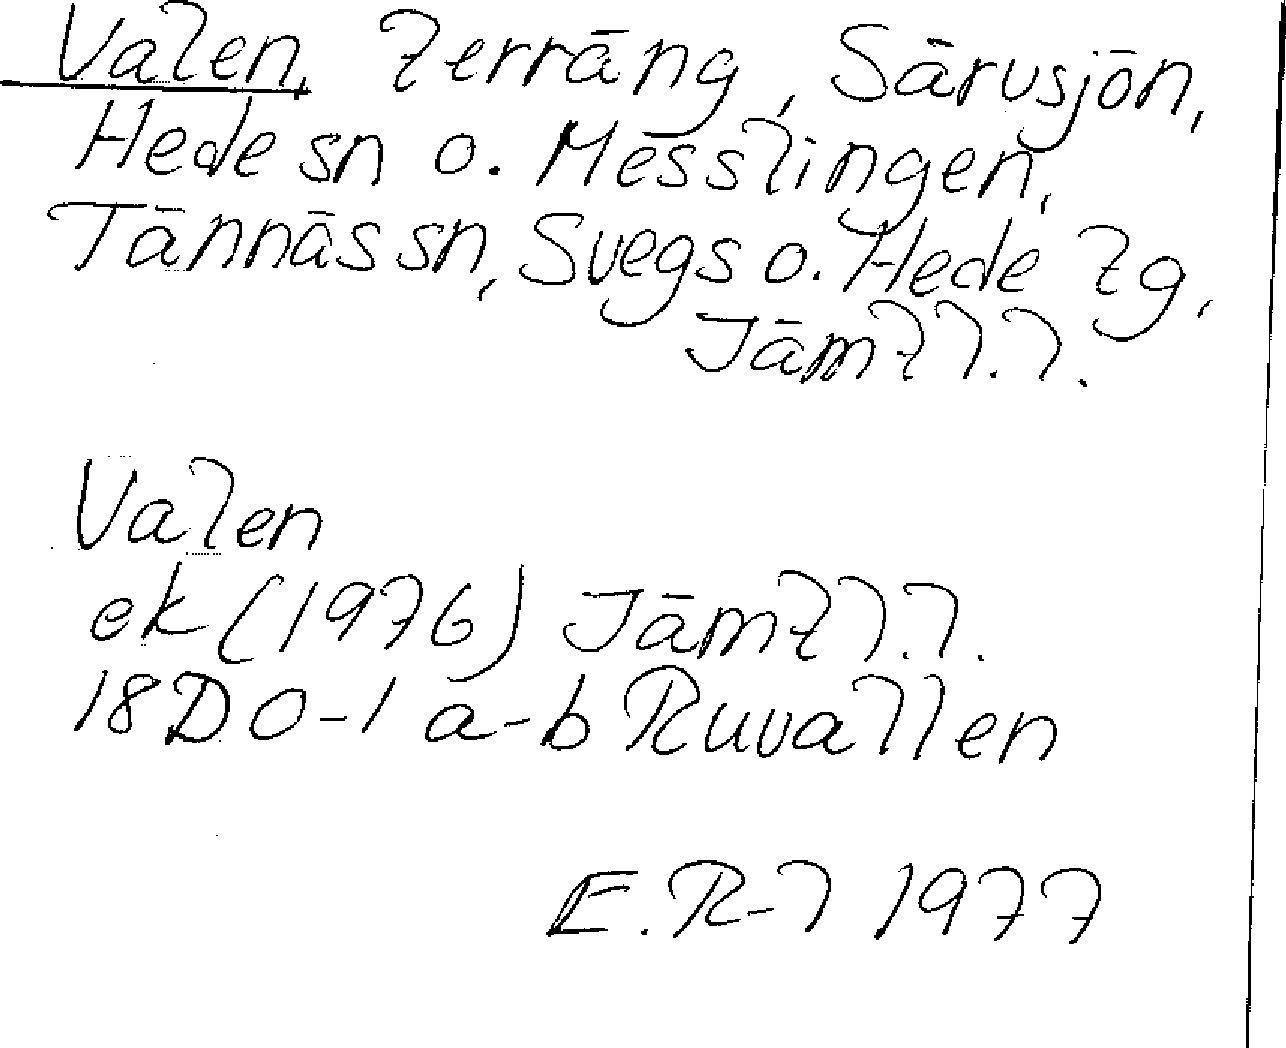 Valen, terräng, Särvsjön,
Hede sn o. Messlingen,
Tännäs sn, Svegs o. Hede tg,
Jämtl.l.
Valen
ek (1976) Jämtl.l.
18D 0-1 a-b Ruvallen
E.R-l 1977